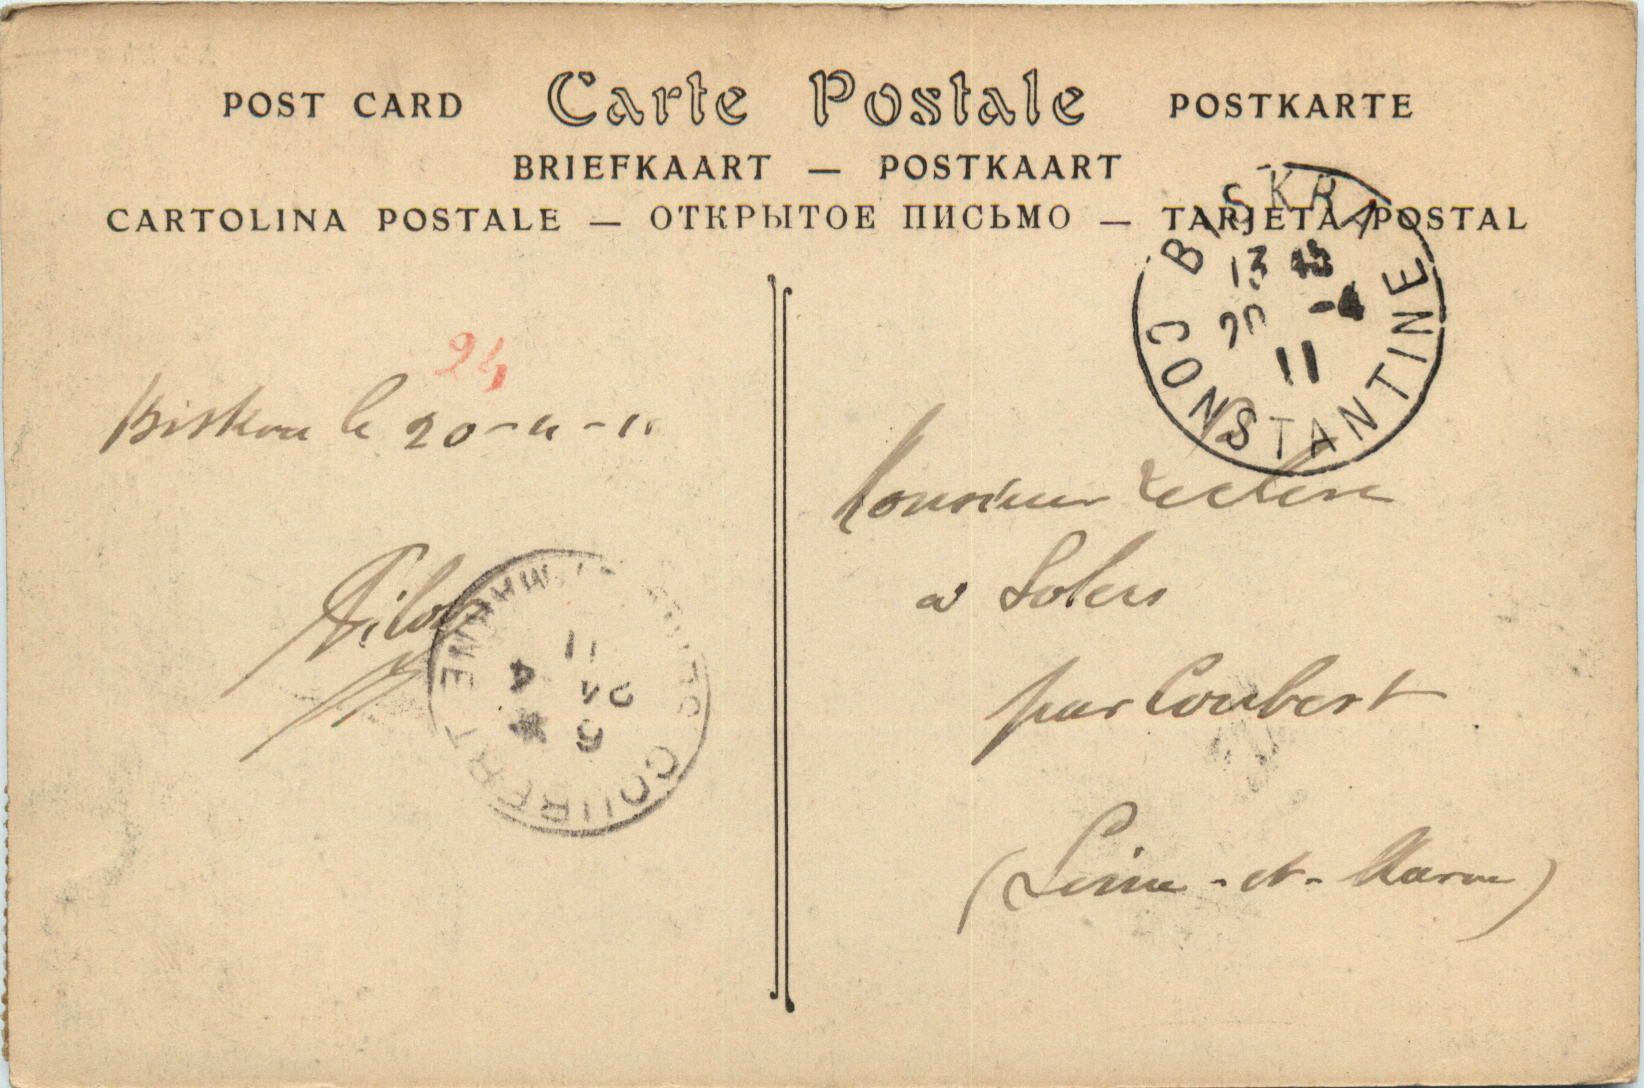 POST CARD Carte Postale POSTKARTE
BRIEFKAART — POSTKAART
CARTOLINA POSTALE — ОТКРЫТОЕ ПИСЬМО — TARJETA POSTAL
BISKRA
13
20 -4
11
CONSTANTINE
24
Biskra le 20-4-11
Monsieur Leclere
a Solers
par Coubert
(Seine-et-Marne)
COUBERT
MARNE
24
4
11